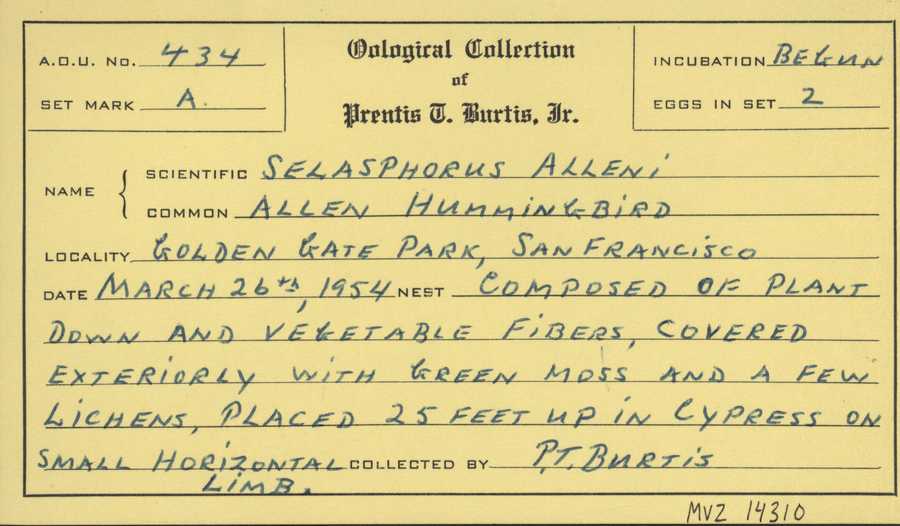 A.O.U. No. 434
SET MARK A.
Oological Collection
of
Prentis T. Burtis, Jr.
INCUBATION BEGUN
EGGS IN SET 2
NAME { SCIENTIFIC SELASPHORUS ALLENI
COMMON ALLEN HUMMINGBIRD
LOCALITY GOLDEN GATE PARK, SAN FRANCISCO
DATE MARCH 26th, 1954 NEST COMPOSED OF PLANT
DOWN AND VEGETABLE FIBERS, COVERED
EXTERIORLY WITH GREEN MOSS AND A FEW
LICHENS, PLACED 25 FEET UP IN CYPRESS ON
SMALL HORIZONTAL COLLECTED BY P.T. BURTIS
LIMB.
MVZ 14310